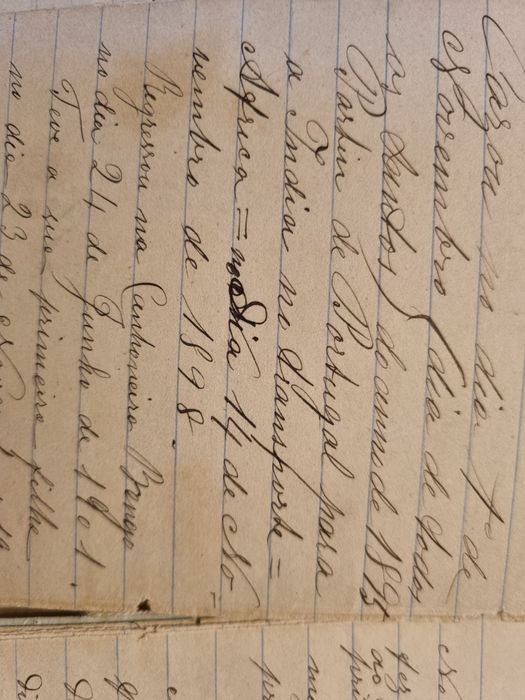 Casou no dia 1º de
Novembro (dia de todos
os Santos) do anno de 1895
Partiu de Portugal para
a India no transporte =
Africa = no dia 14 de No
vembro de 1898.
Regressou na Canhoneira Bengo
no dia 24 de Junho de 1901
Teve a sua primeira filha
no dia 23 de